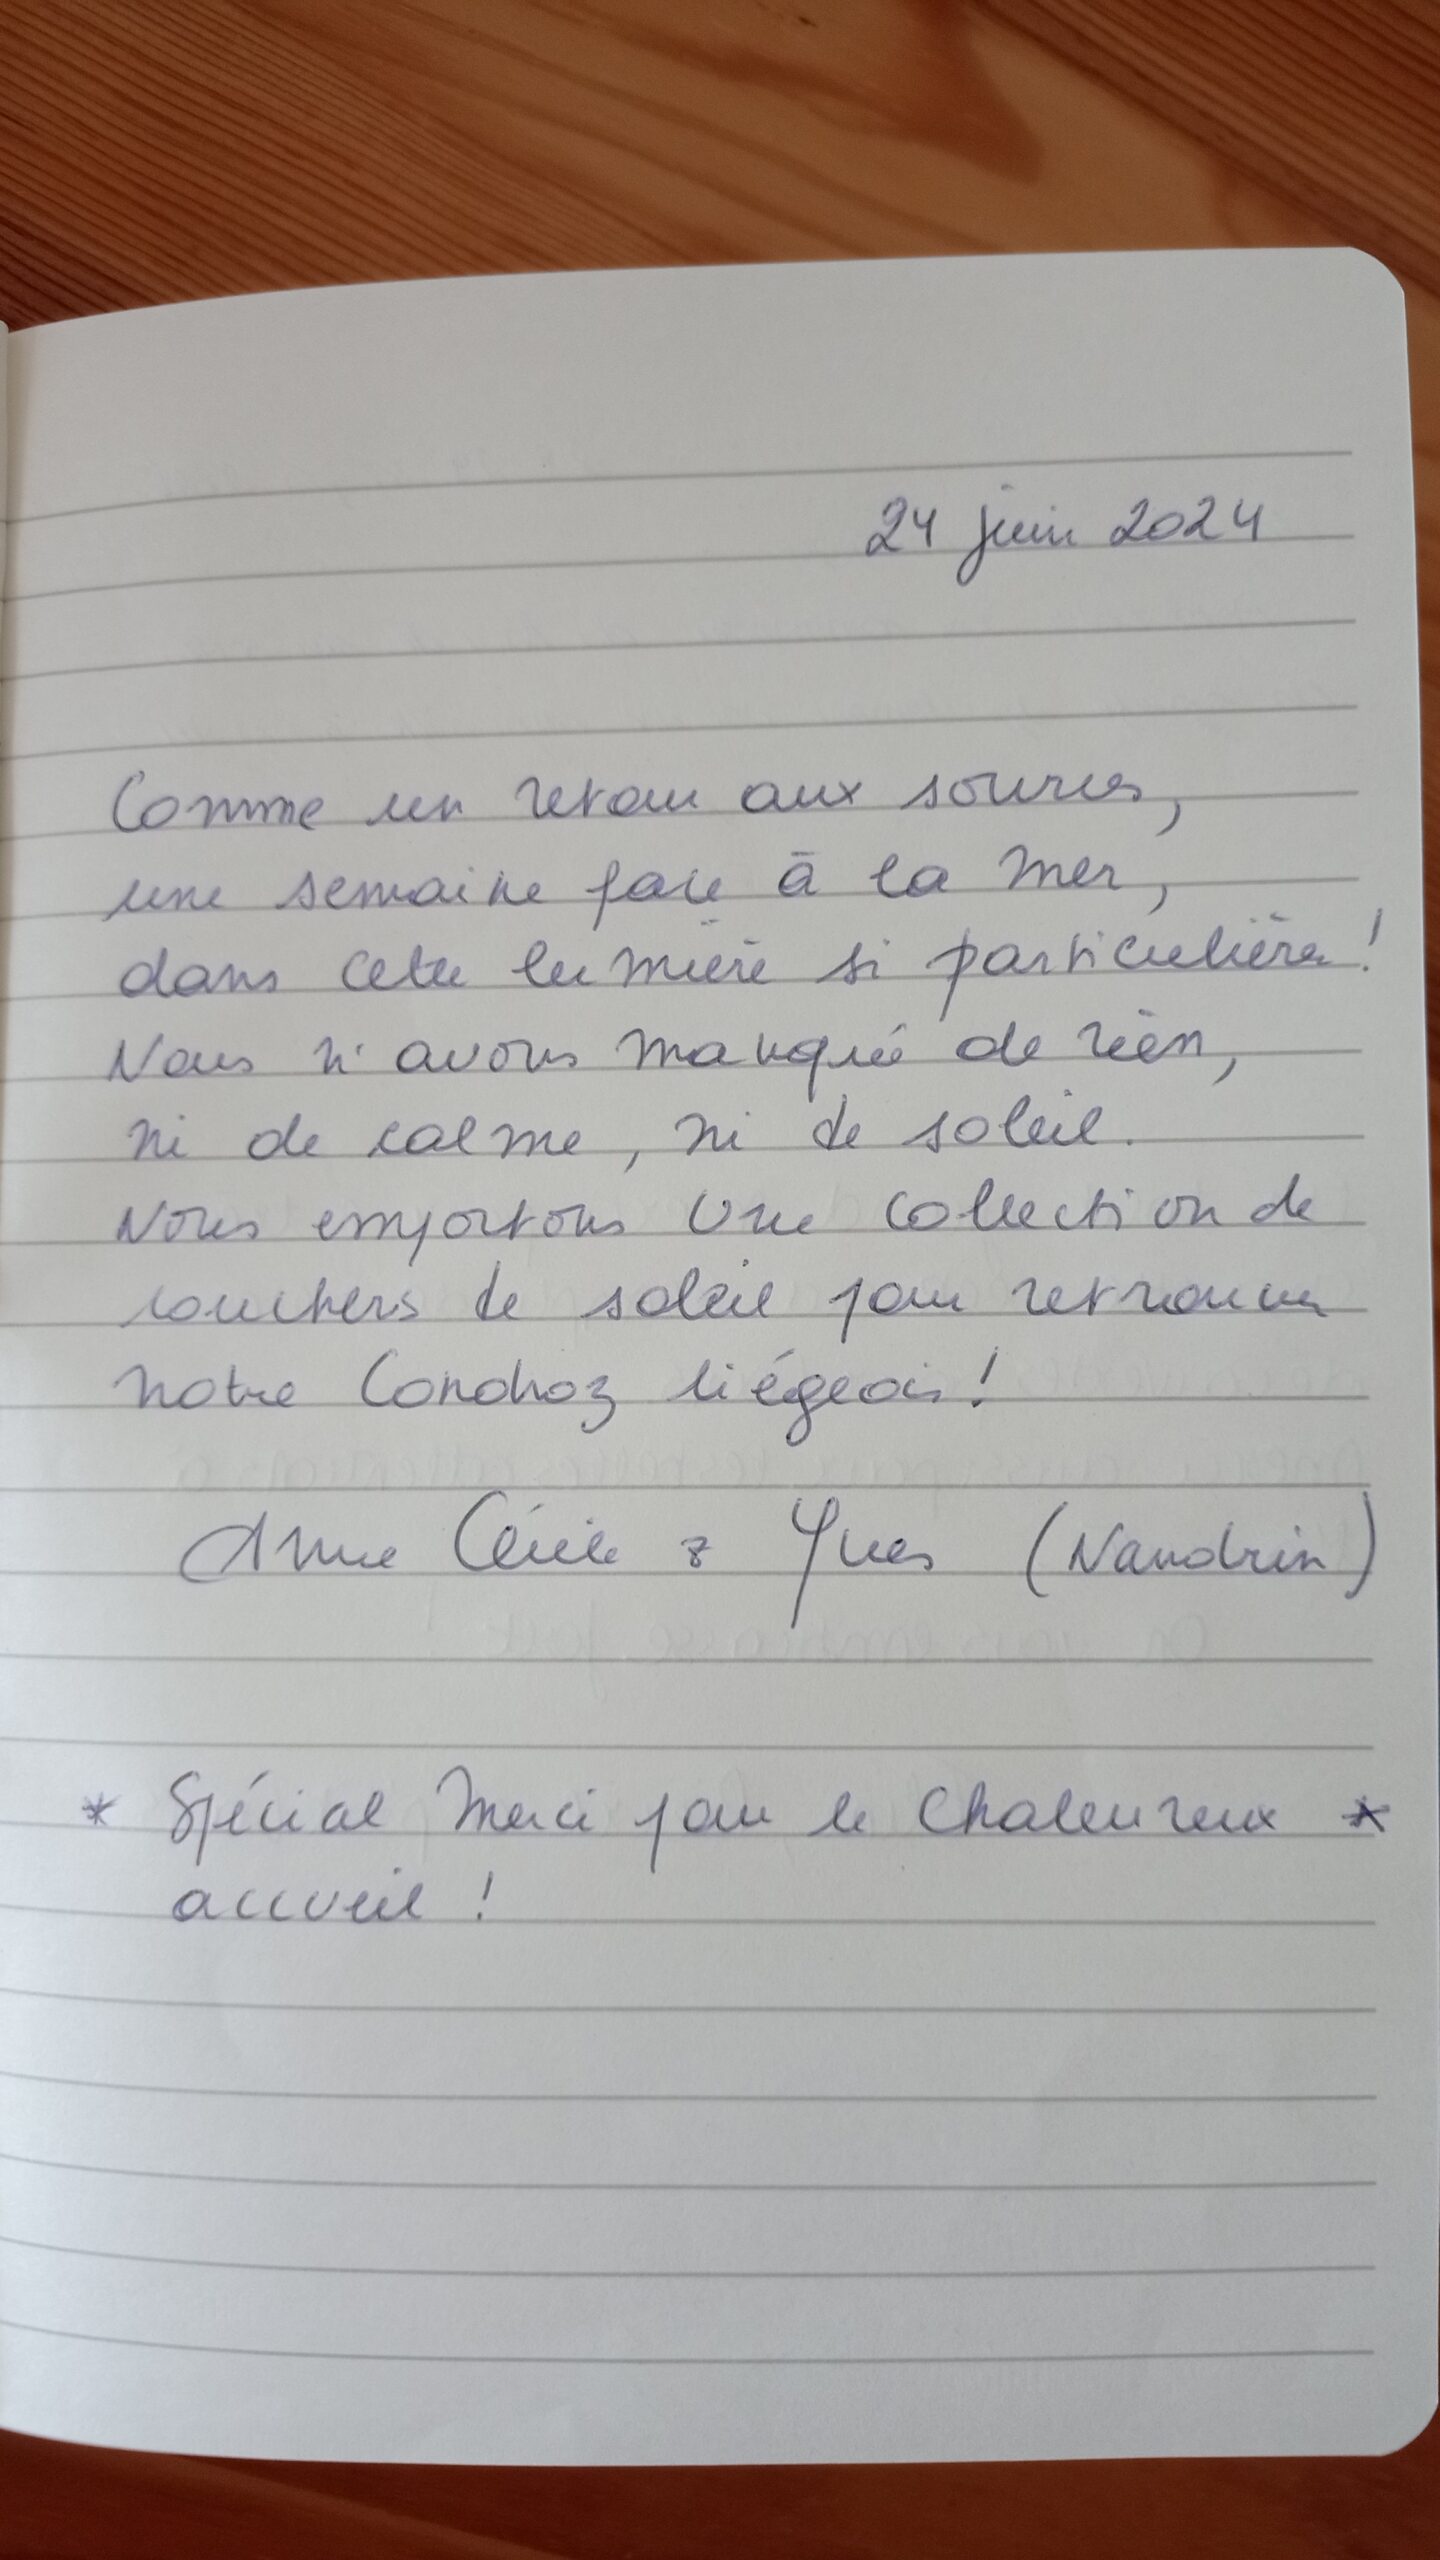 24 juin 2024
Comme un retour aux sources,
une semaine face à la mer,
dans cette lumière si particulière !
Nous n'avons manqué de rien,
ni de calme, ni de soleil.
Nous emportons une collection de
couchers de soleil pour retrouver
notre Condroz liégeois !
Anne Cécile & Yves (Nandrin)
* Spécial merci pour le chaleureux *
accueil !